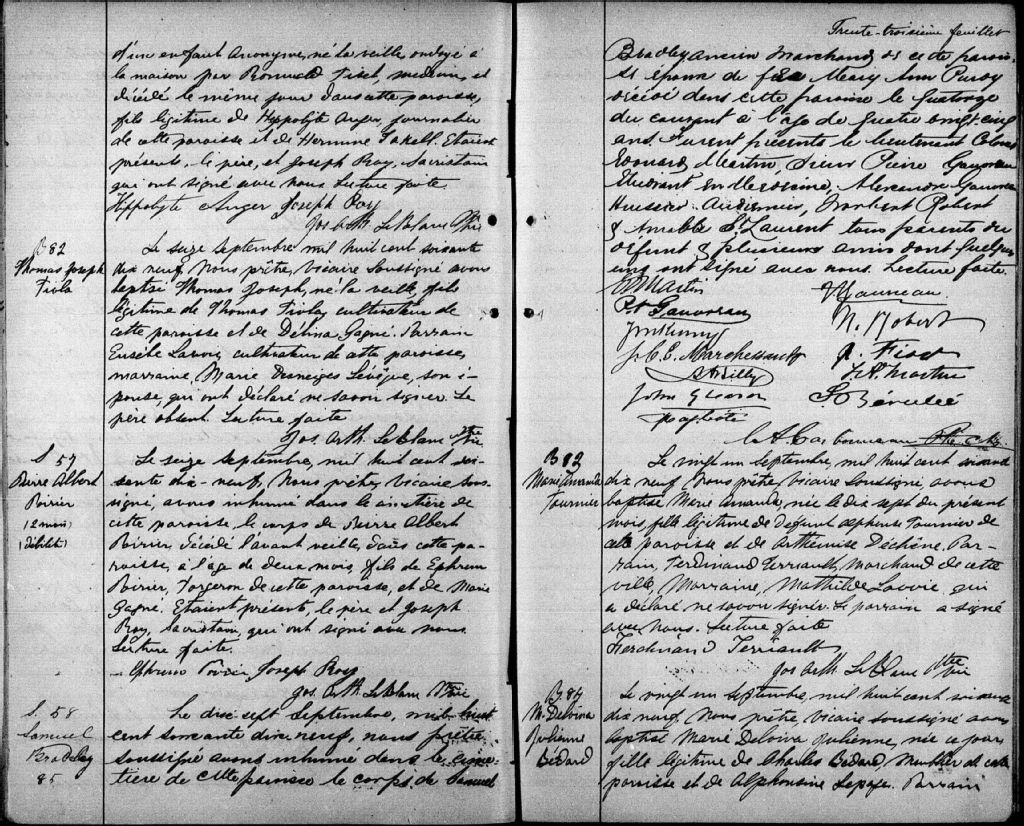 d'un enfant anonyme, né la veille, ondoyé à
la maison par Romuald Fiset, médecin, et
décédé le même jour dans cette paroisse,
fils légitime de Hippolyte Auger, journalier
de cette paroisse et de Hermine Etaient
présents, le père, et Joseph Roy, sacristain
qui ont signé avec nous. Lecture faite.
Hippolyte Auger Joseph Roy
Jos. Arth. LeBlanc Ptre
B 82
Thomas Joseph
Fiola
Le seize septembre, mil huit cent soixante
dix neuf, Nous prêtre, vicaire soussigné avons
baptisé Thomas Joseph, né la veille, fils
légitime de Thomas Fiola, cultivateur de
cette paroisse et de Délina Gagné. Parrain
Eusèbe Lavoie, cultivateur de cette paroisse,
marraine, Marie Desneiges Lévêque, son é-
pouse, qui ont déclaré ne savoir signer. Le
père absent. Lecture faite
Jos. Arth. LeBlanc Ptre Vic
S. 57
Pierre Albert
Poirier
(2 mois)
(Débilité)
Le seize septembre, mil huit cent soi-
xante dix-neuf, Nous prêtre, vicaire sous-
signé, avons inhumé dans le cimetière de
cette paroisse, le corps de Pierre Albert
Poirier décédé l'avant veille, dans cette pa-
roisse, à l'age de deux mois, fils de Ephrem
Poirier, forgeron de cette paroisse, et de Marie
Gagné. Etaient présents, le père et Joseph
Roy, sacristain, qui ont signé avec nous.
Lecture faite.
Ephrem Poirier Joseph Roy
Jos. Arth. LeBlanc Ptre Vic
S. 58
Samuel
Bradley
85
Le dix sept septembre, mil huit
cent soixante dix neuf, nous prêtre
soussigné avons inhumé dans le cime-
tière de cette paroisse le corps de Samuel
Trente-troisième feuillet
Bradley ancien marchand de cette parois-
se époux de feu Mary Ann Purdy
décédé dans cette paroisse le quatorze
du courant à l'âge de quatre vingt cinq
ans. Furent présents le Lieutenant Colonel
Edouard Martin, Sieur Pierre Gauvreau
Etudiant en Médecine, Alexandre Gauvreau
Huissier Audiencier, Norbert Robert
& Amable St Laurent tous parents du
défunt & plusieurs amis dont quelques
uns ont signé avec nous. Lecture faite.
E Martin
Gauvreau
Pre Gauvreau
N. Robert
J. C. E. Marchessault
R. Fiset
Reilly
Martin
John Gleeson
S. Bérubé
Ptre Curé
B 83
Marie Amanda
Fournier
Le vingt un septembre, mil huit cent soixante
dix neuf, Nous prêtre, vicaire soussigné, avons
baptisé Marie Amanda, née le dix sept du présent
mois, fille légitime de Defunt Alphonse Fournier de
cette paroisse et de Arthémise Déchène. Par-
rain, Ferdinand Terriault, marchand de cette
ville, Marraine, Mathilde Lavoie, qui
a déclaré ne savoir signer. Le parrain a signé
avec nous. Lecture faite
Ferdinand Terriault
Jos. Arth. LeBlanc Ptre Vic
B 84
M. Delvina
Julienne
Bédard
Le vingt un septembre, mil huit cent soixante
dix neuf, Nous prêtre, vicaire soussigné avons
baptisé Marie Delvina Julienne, née ce jour,
fille légitime de Charles Bédard, meublier de cette
paroisse et de Alphonsine Lepage. Parrain